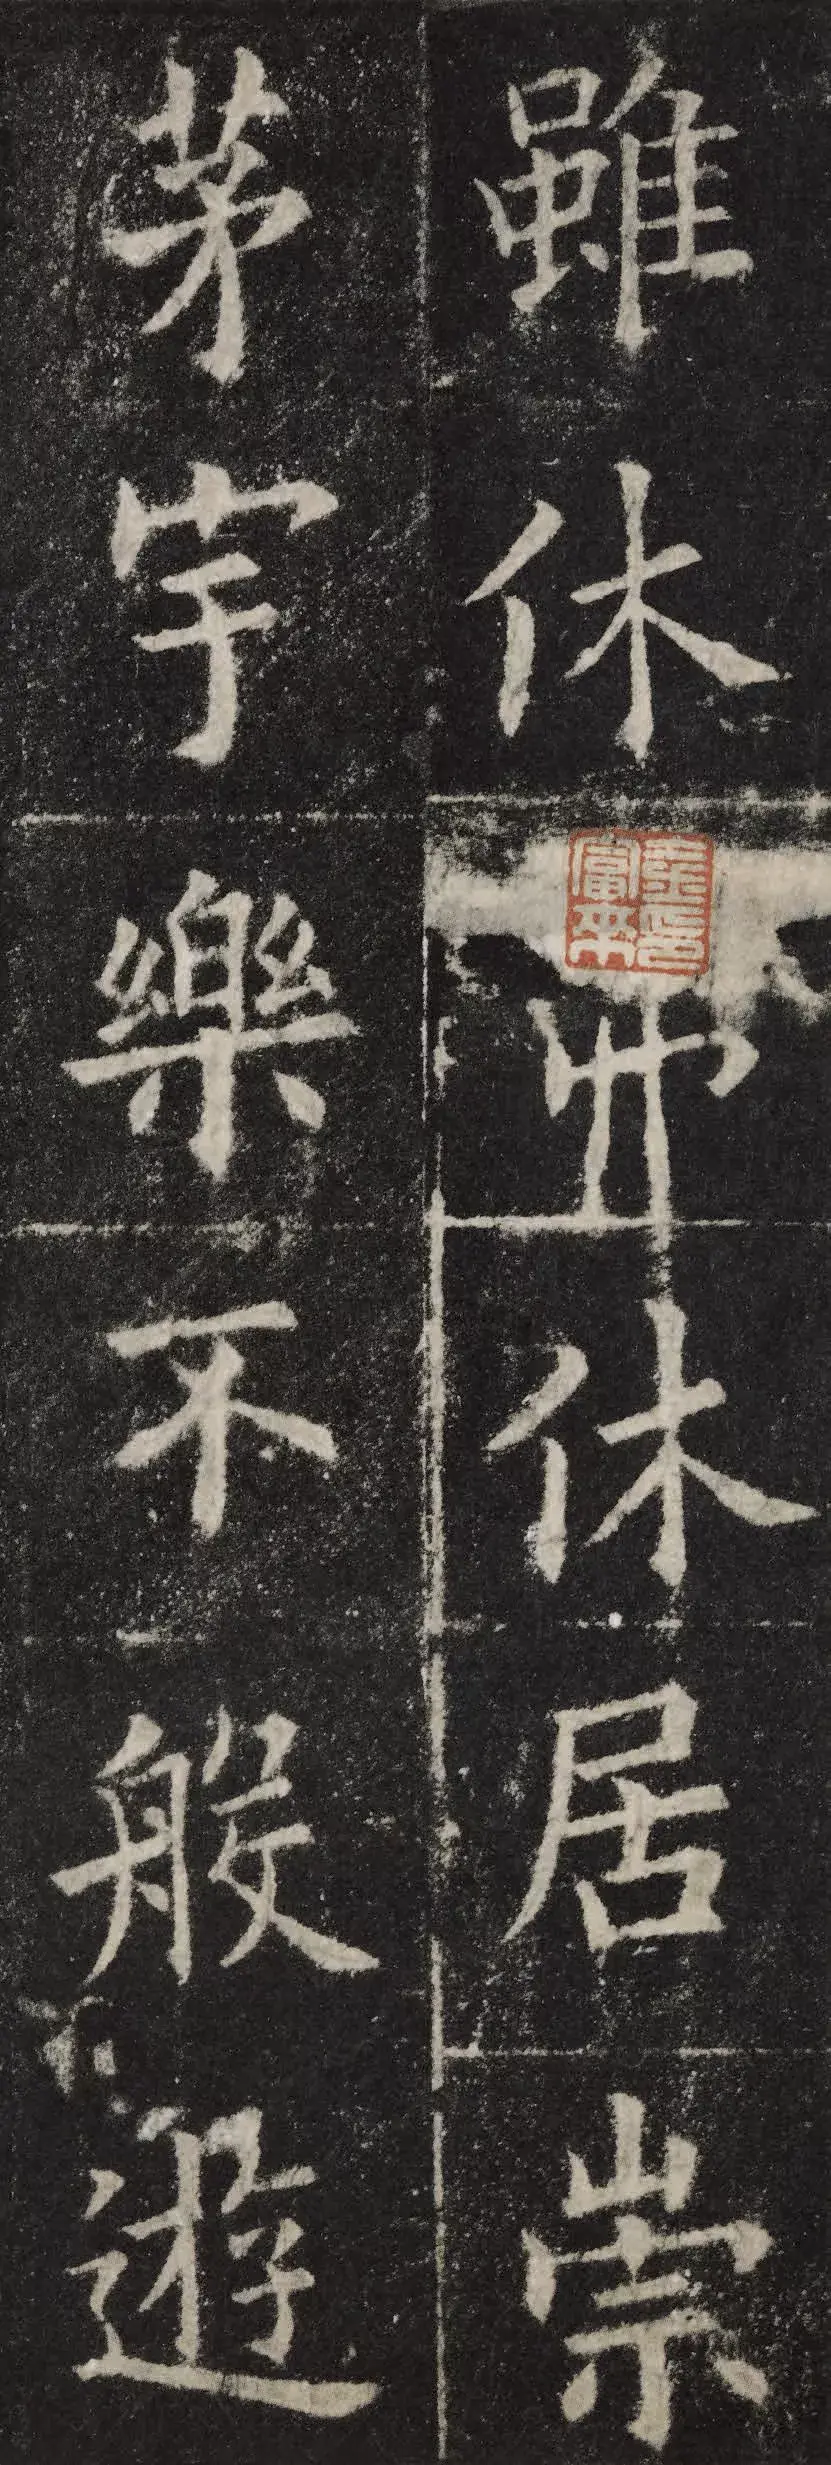 雖休弗休居崇
茅宇樂不般遊